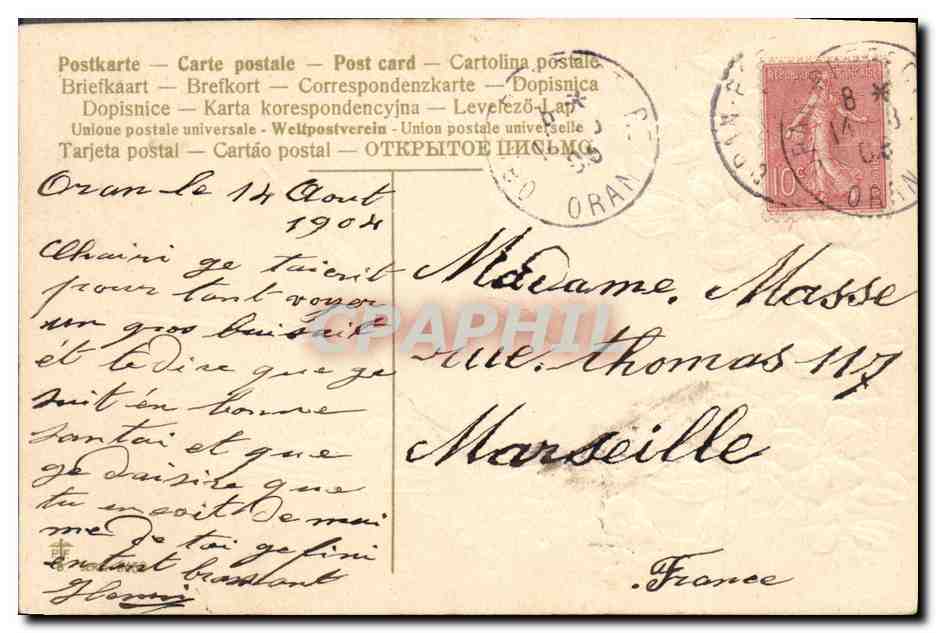 Postkarte — Carte postale — Post card — Cartolina postale
Briefkaart — Brefkort — Correspondenzkarte — Dopisnica
Dopisnice — Karta korespondencyjna — Levelező-Lap
Unione postale universale - Weltpostverein - Union postale universelle
Tarjeta postal — Cartáo postal — ОТКРЫТОЕ ПИСЬМО
Oran le 14 Aout
1904
Chairi ge taicrit
pour tant voyer
un gros baisait
ét tèdire que ge
suit én bonne
santai et que
ge daisire que
tu en soit de mai
me de toi ge fini
en tant brassant
Henri
Madame. Masse
rue. thomas 117
Marseille
France
10c
ORAN
ORAN
CPAPHIL